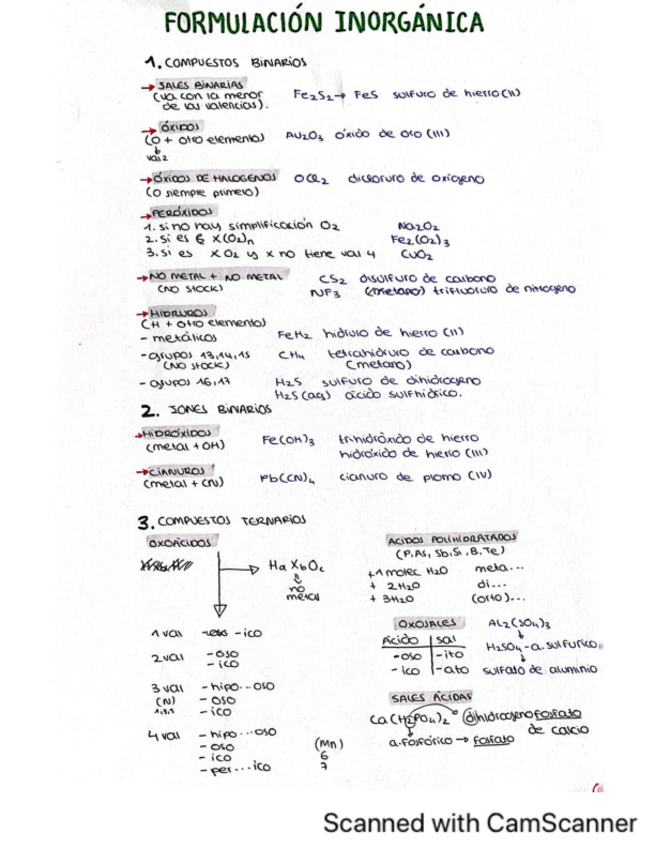 FORMULACIÓN INORGÁNICA
1. COMPUESTOS BINARIOS
→ SALES BINARIAS
(va con la menor
de las valencias).
Fe2S2 → FeS sulfuro de hierro (II)
→ ÓXIDOS
(O + otro elemento)
val 2
Au2O3 óxido de oro (III)
→ ÓXIDOS DE HALOGENOS
(O siempre primero)
OCl2 dicloruro de oxígeno
→ PERÓXIDOS
1. si no hay simplificación O2
2. si es X(O2)n
3. si es XO2 y X no tiene val 4
Na2O2
Fe2(O2)3
CuO2
→ NO METAL + NO METAL
(NO STOCK)
CS2 disulfuro de carbono
NF3 (metano) trifluoruro de nitrogeno
→ HIDRUROS
(H + otro elemento)
- metálicos
FeH2 hidruro de hierro (II)
- grupos 13,14,15
(NO STOCK)
CH4 tetrahidruro de carbono
(metano)
- grupos 16,17
H2S sulfuro de dihidrogeno
H2S (aq) ácido sulfhídrico.
2. IONES BINARIOS
→ HIDRÓXIDOS
(metal + OH)
Fe(OH)3 trihidróxido de hierro
hidróxido de hierro (III)
→ CIANUROS
(metal + CN)
Pb(CN)4 cianuro de plomo (IV)
3. COMPUESTOS TERNARIOS
OXOÁCIDOS
Ha Xb Oc
no
metal
1 val -ico
2 val -oso
-ico
3 val - hipo...oso
(N) - oso
1,3,5 - ico
4 val - hipo...oso
- oso
- ico
- per...ico
(Mn)
6
7
ACIDOS POLIHIDRATADOS
(P, As, Sb, Si, B, Te)
+1 molec H2O meta...
+ 2H2O di...
+ 3H2O (orto)...
OXOSALES
Ácido | sal
-oso | -ito
-ico | -ato
Al2(SO4)3
H2SO4 - a. sulfurico.
sulfato de aluminio
SALES ÁCIDAS
Ca(H2PO4)2 dihidrogenofosfato
de calcio
a. fosfórico → fosfato
Scanned with CamScanner